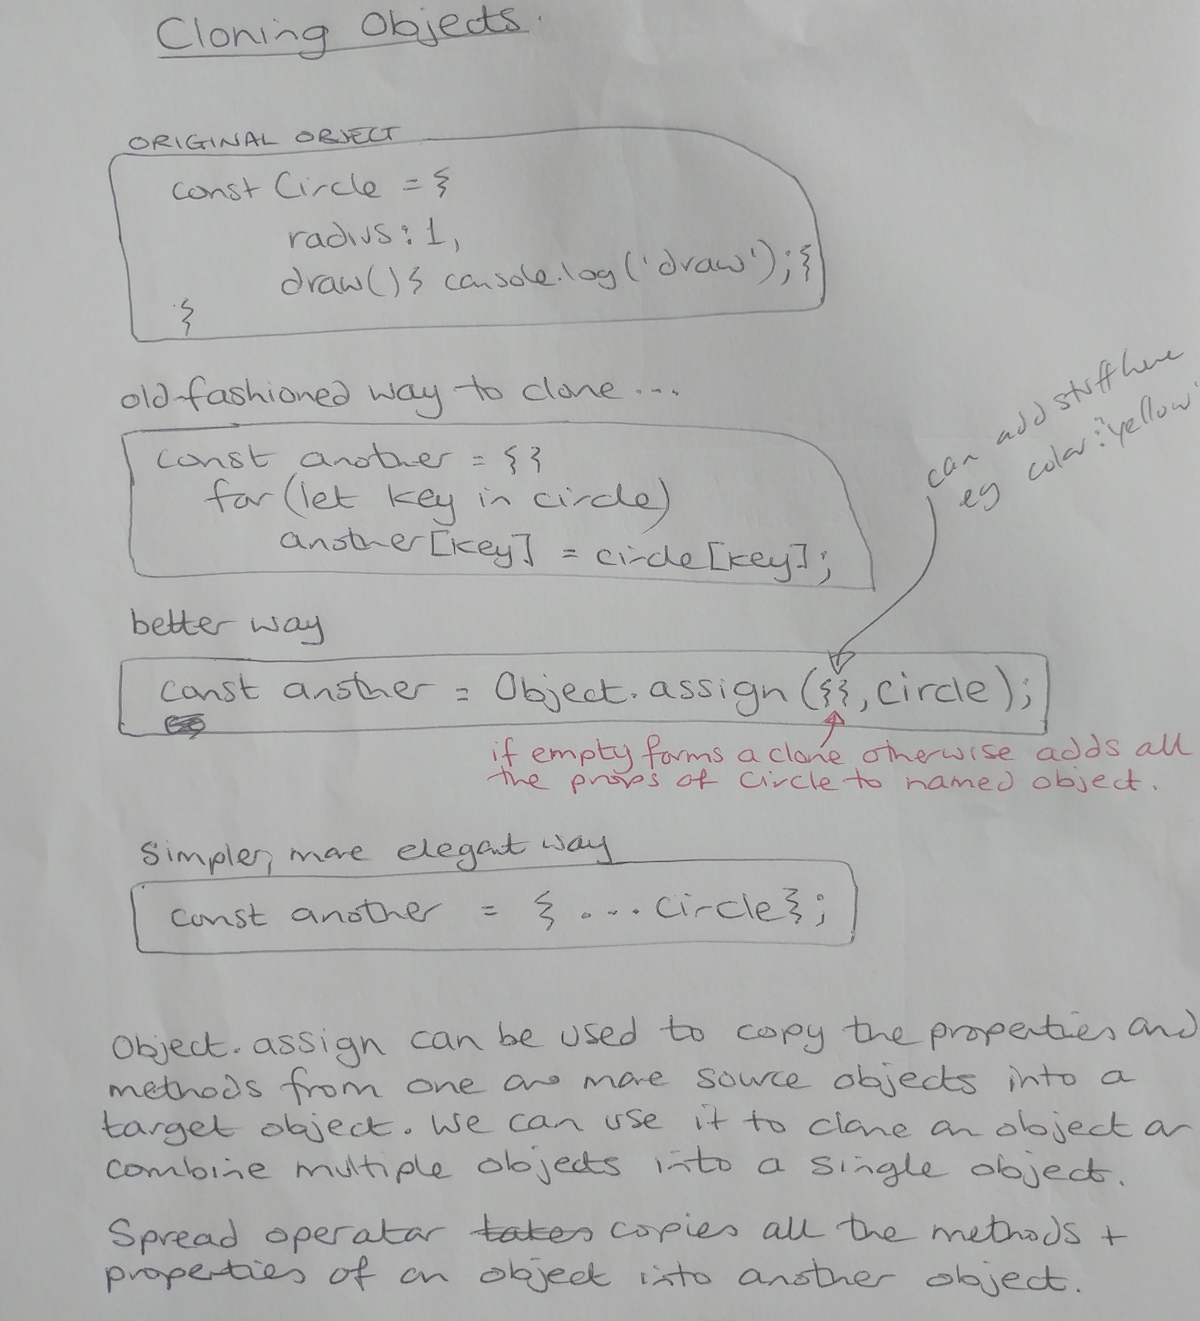 Cloning Objects.
ORIGINAL OBJECT
const Circle = {
radius: 1,
draw() { console.log('draw'); }
}
old-fashioned way to clone ...
const another = {}
for (let key in circle)
another[key] = circle[key];
can add stuff here
eg color: 'yellow'
better way
const another = Object.assign({}, circle);
if empty forms a clone otherwise adds all
the props of circle to named object.
Simpler, more elegant way
const another = { ...circle};
Object.assign can be used to copy the properties and
methods from one or more source objects into a
target object. We can use it to clone an object or
combine multiple objects into a single object.
Spread operator takes copies all the methods +
properties of an object into another object.